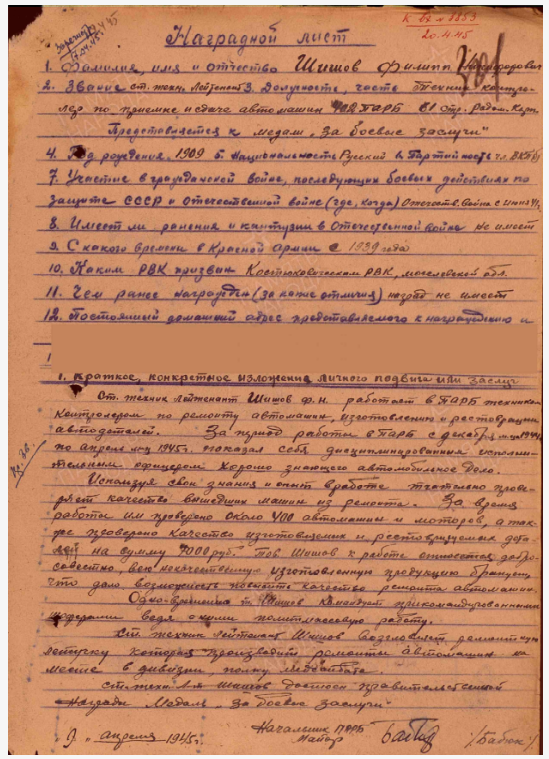 К вх № 1853
20.4.45
Зарегистр
17.4.45г.
Наградной лист
1. Фамилия, имя и отчество Шишов Филипп Никифорович
2. Звание ст. техн. Лейтенант 3. Должность, часть Техник контро-
лер по приемке и сдаче автомашин ПАРБ
Представляется к медали „За боевые заслуги"
4. Год рождения 1909 5. Национальность Русский 6. Партийность чл. ВКП(б)
7. Участие в гражданской войне, последующих боевых действиях по
защите СССР и отечественной войне (где, когда) Отечеств. Война с
8. Имеет ли ранения и контузии в Отечественной войне не имеет
9. С какого времени в Красной Армии с 1939 года
10. Каким РВК призван Костюковическим РВК, могилевской обл.
11. Чем ранее награжден (за какие отличия) наград не имеет
12. Постоянный домашний адрес представляемого к награждению и
1. Краткое, конкретное изложение личного подвига или заслуг
Ст. техник лейтенант Шишов Ф.Н. работает в ПАРБ техником
контролером по ремонту автомашин, изготовлению и реставрации
автодеталей. За период работы в ПАРБ с декабря
по апрель м-ц 1945г. показал себя дисциплинированным исполни-
тельным офицером хорошо знающего автомобильное дело.
Используя свои знания и опыт в работе тщательно прове-
ряет качество вышедших машин из ремонта. За время
работы им проверено около 400 автомашин и моторов, а так-
же проверено качество изготовляемых и реставрируемых дета-
лей на сумму 9000 руб. Тов. Шишов к работе относится добро-
совестно, всю некачественную изготовленную продукцию бракует,
что дало возможность повысить качество ремонта автомашин.
Одновременно т. Шишов командует прикомандированными
шоферами ведя с ними политмассовую работу.
Ст. техник лейтенант Шишов возглавляет ремонтную
летучку которая производит ремонты автомашин на
месте в дивизии, полку, медсанбате.
ст. техн. л-т Шишов достоин правительственной
Награды Медаль „За боевые заслуги"
Начальник ПАРБ
9 „ апреля 1945г. Майор /Бабюк/